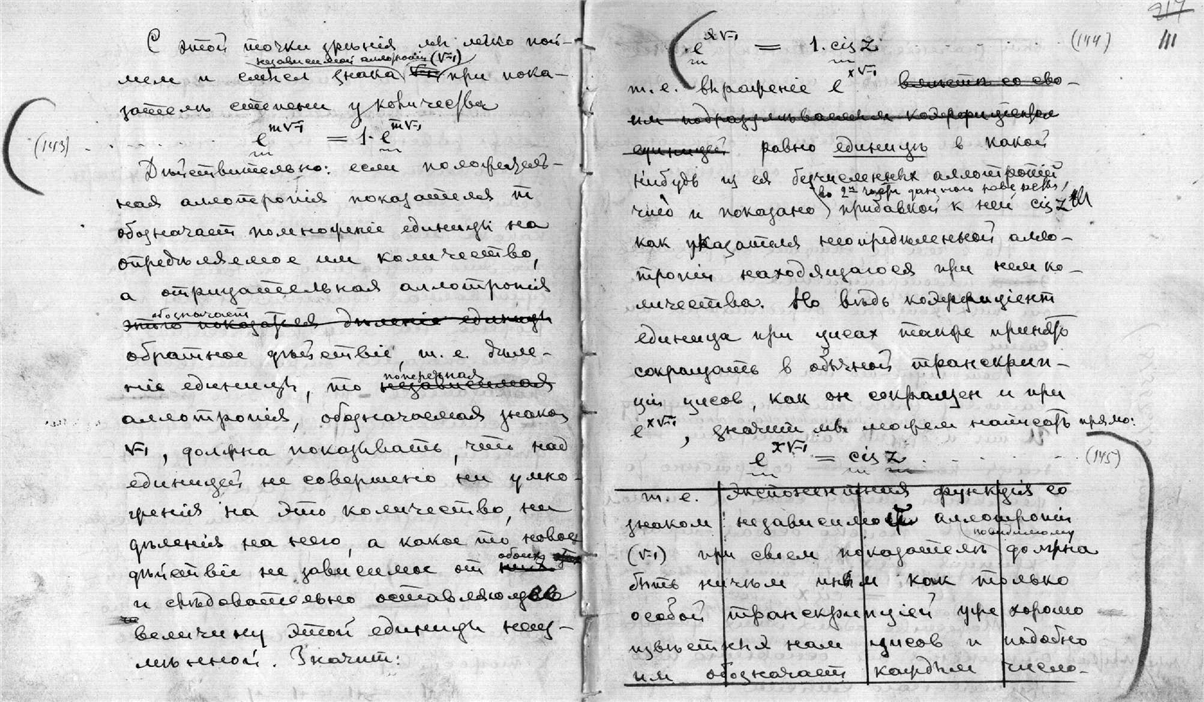 С этой точки зрѣнія мы легко пой-
независимой аллотропіи (√-1)
мем и смысл знака √-1 при пока-
зателѣ степени у количества
(143) . . . . . e^{m√-1} = 1. e^{m√-1}
Дѣйствительно: если положитель-
ная аллотропія показателя m
обозначает помноженіе единицы на
опредѣляемое им количество,
а отрицательная аллотропія
обозначает
этого показателя дѣленіе единицы
обратное дѣйствіе, т. е. дѣле-
ніе единицы, то независимая
поперечная
аллотропія, обозначаемая знаком
√-1, должна показывать, что над
единицей не совершено ни умно-
женія на это количество, ни
дѣленія на него, а какое то новое
дѣйствіе не зависимое от
обоих
и слѣдовательно оставляющее
величину этой единицы неиз-
мѣнной. Значит:
217
111
e^{x√-1} = 1. cis z . . . . . (144)
т. е. выраженіе e^{x√-1} вмѣстѣ со сво-
им подразумѣваемым коэффиціентом
единицей равно единицѣ в какой
нибудь из ея безчисленных аллотропій,
во 2й части данного равенства,
что и показано придавкой к ней cis z
как указателя неопредѣленной алло-
тропіи находящагося при нем ко-
личества. Но вѣдь коэффиціент
единица при цисах также принято
сокращать в обычной транскрип-
ціи цисов, как он сокращен и при
e^{x√-1}, значит мы можем написать прямо:
e^{x√-1} = cis z . . . . . (145)
т. е. Экспонентная функція со
знаком независимой аллотропіи
повидимому
(√-1) при своем показателѣ должна
быть ничѣм иным как только
особой транскрипціей уже хорошо
извѣстных нам цисов и подобно
им обозначает каждым число-